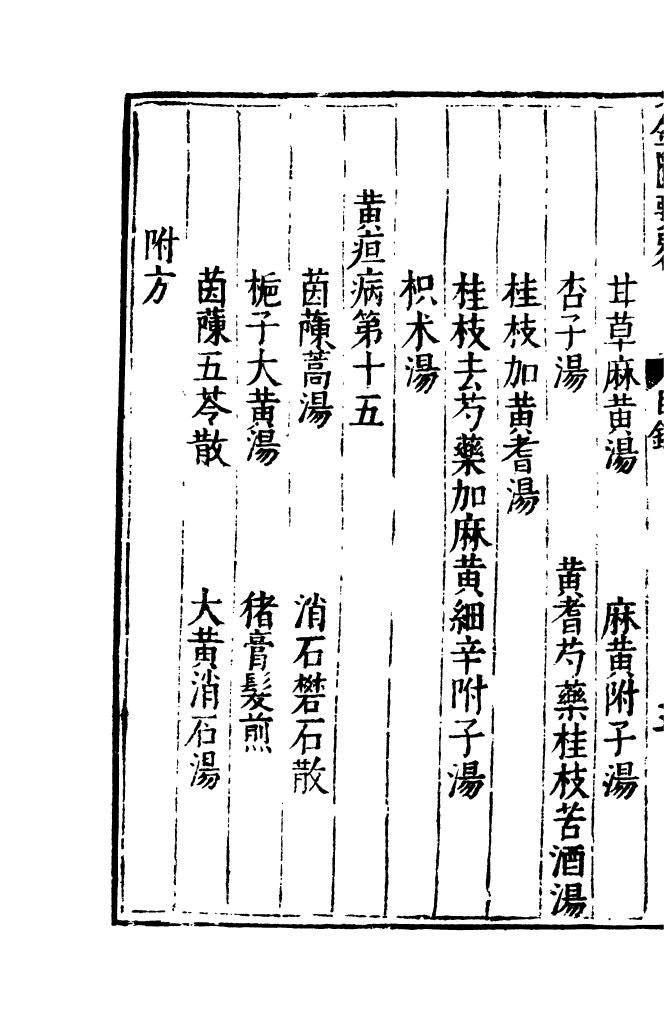 甘草麻黄湯　麻黄附子湯
杏子湯　黄耆芍藥桂枝苦酒湯
桂枝加黄耆湯
桂枝去芍藥加麻黄細辛附子湯
枳术湯
黄疸病第十五
茵蔯蒿湯　消石礬石散
梔子大黄湯　猪膏髮煎
茵蔯五苓散　大黄消石湯
附方